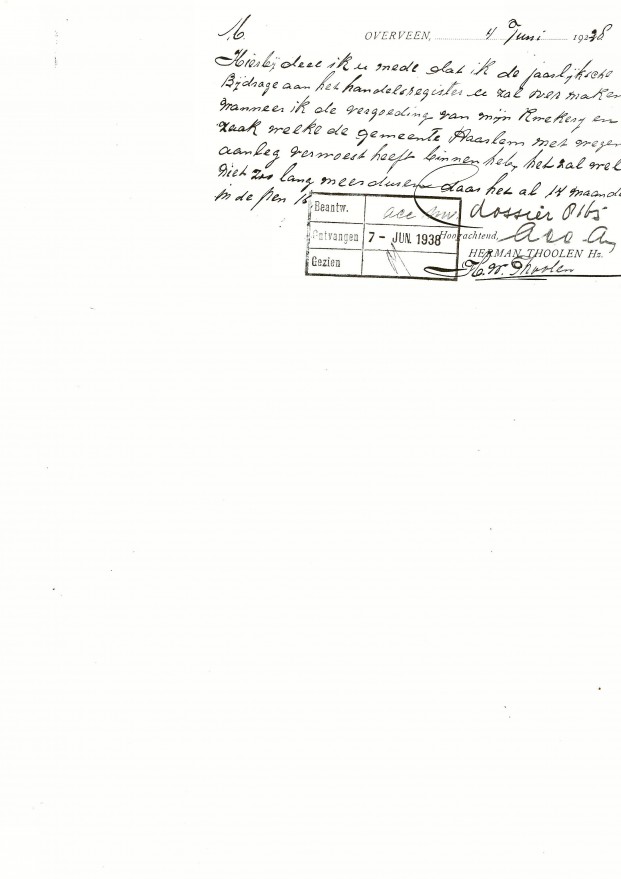 M.
OVERVEEN, 4 Juni 1938
Hierbij deel ik u mede dat ik de jaarlijksche
Bijdrage aan het handelsregister u zal over maken
wanneer ik de vergoeding van mijn Kwekerij en
zaak welke de gemeente Haarlem met wegen
aanleg verwoest heeft binnen heb, het zal wel
niet zoo lang meer duren daar het al 14 maande
in de pen is
Beantw.
dossier 8165
Ontvangen 7 - JUN. 1938
Hoogachtend,
HERMAN THOOLEN Hz.
Gezien
H. W. Thoolen